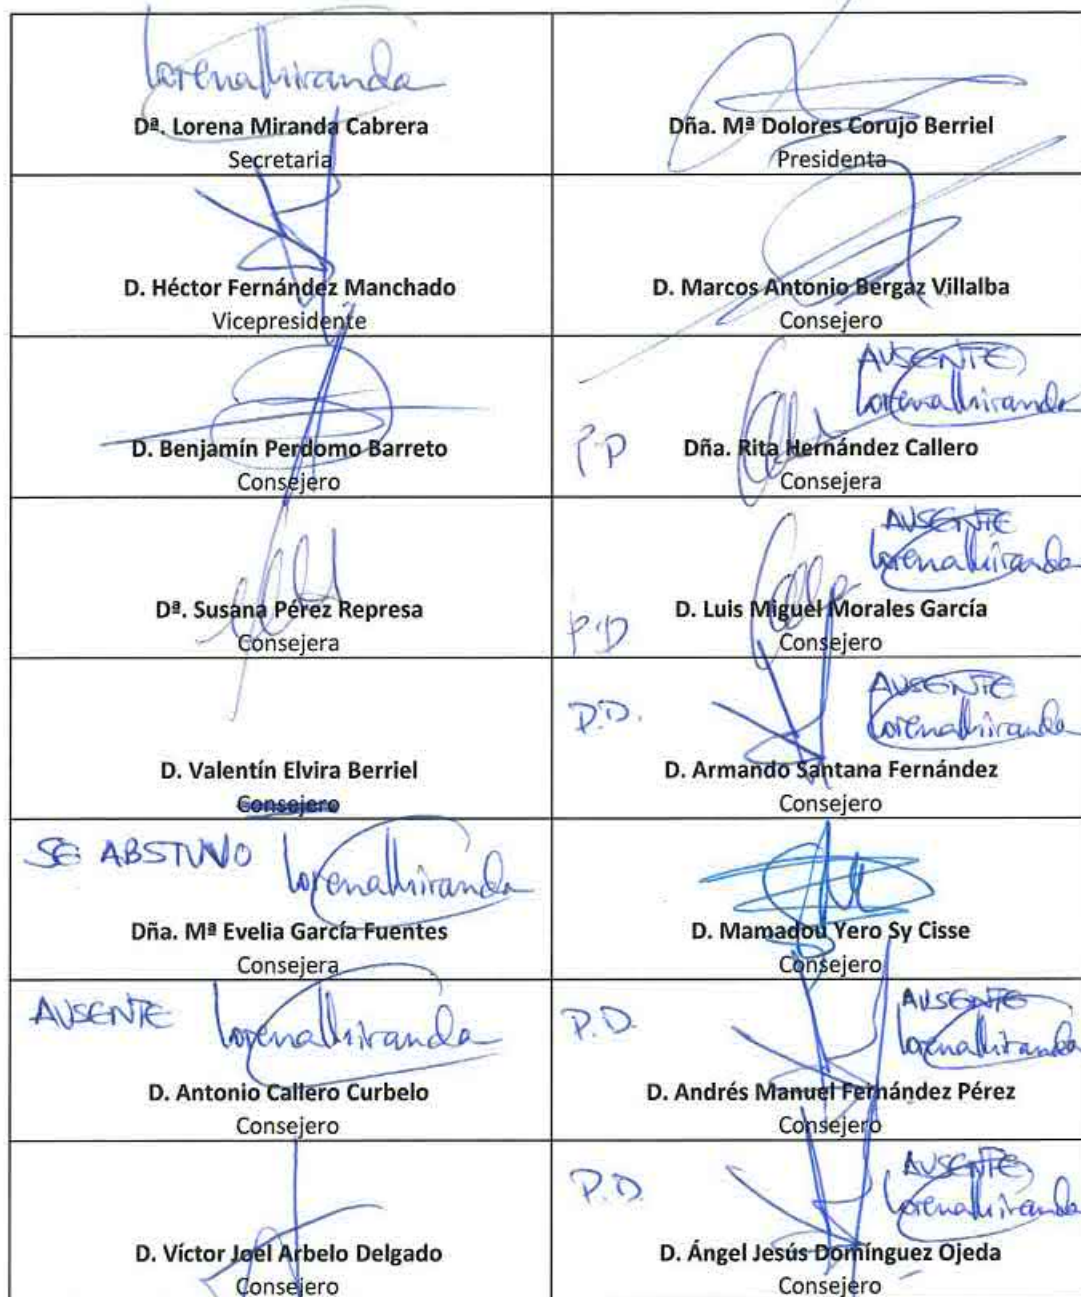 Lorena Miranda
Dª. Lorena Miranda Cabrera
Secretaria
Dña. Mª Dolores Corujo Berriel
Presidenta
D. Héctor Fernández Manchado
Vicepresidente
D. Marcos Antonio Bergaz Villalba
Consejero
D. Benjamín Perdomo Barreto
Consejero
AUSENTE
Lorena Miranda
P.D
Dña. Rita Hernández Callero
Consejera
Dª. Susana Pérez Represa
Consejera
AUSENTE
Lorena Miranda
P.D
D. Luis Miguel Morales García
Consejero
D. Valentín Elvira Berriel
Consejero
AUSENTE
P.D.
Lorena Miranda
D. Armando Santana Fernández
Consejero
SE ABSTUVO Lorena Miranda
Dña. Mª Evelia García Fuentes
Consejera
D. Mamadou Yero Sy Cisse
Consejero
AUSENTE Lorena Miranda
D. Antonio Callero Curbelo
Consejero
AUSENTE
P.D.
Lorena Miranda
D. Andrés Manuel Fernández Pérez
Consejero
D. Víctor Joel Arbelo Delgado
Consejero
AUSENTE
P.D.
Lorena Miranda
D. Ángel Jesús Domínguez Ojeda
Consejero